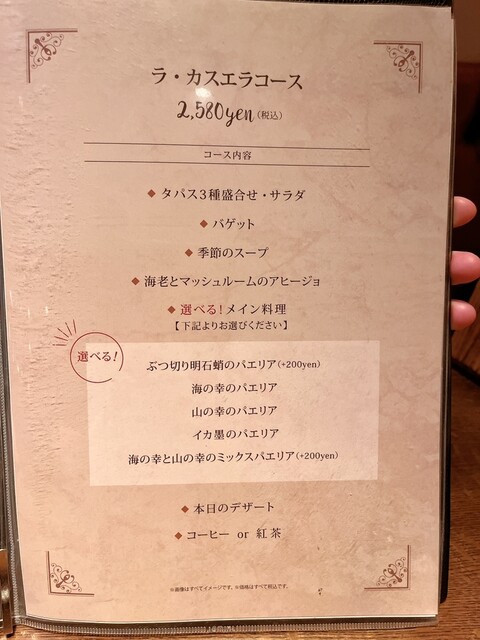 ラ・カスエラコース
2,580yen(税込)
コース内容
◆ タパス3種盛合せ・サラダ
◆ バゲット
◆ 季節のスープ
◆ 海老とマッシュルームのアヒージョ
◆ 選べる!メイン料理
【下記よりお選びください】
選べる!
ぶつ切り明石蛸のパエリア(+200yen)
海の幸のパエリア
山の幸のパエリア
イカ墨のパエリア
海の幸と山の幸のミックスパエリア(+200yen)
◆ 本日のデザート
◆ コーヒー or 紅茶
※画像はすべてイメージです。※価格はすべて税込です。